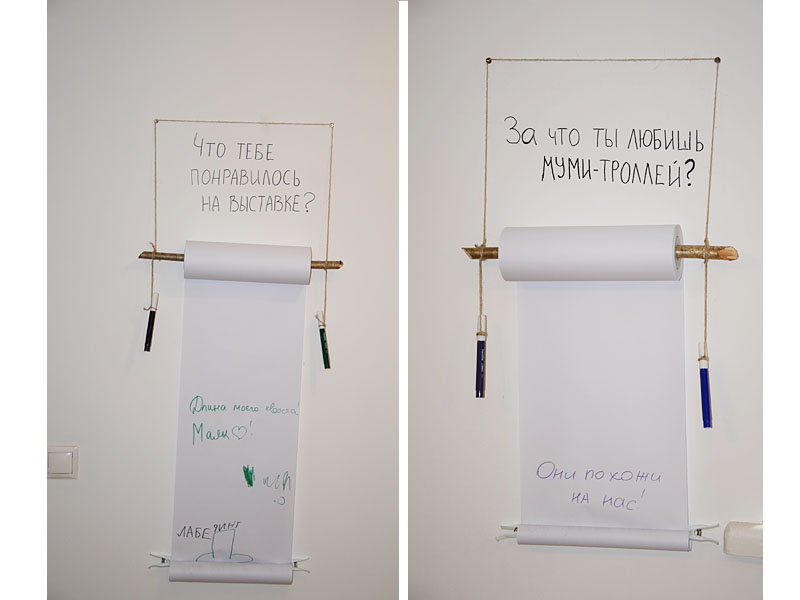 Что тебе
понравилось
на выставке?
Длина моего хвоста!
Маяк ♡!
ЛАБЕРИНТ
За что ты любишь
муми-троллей?
Они похожи
на нас!